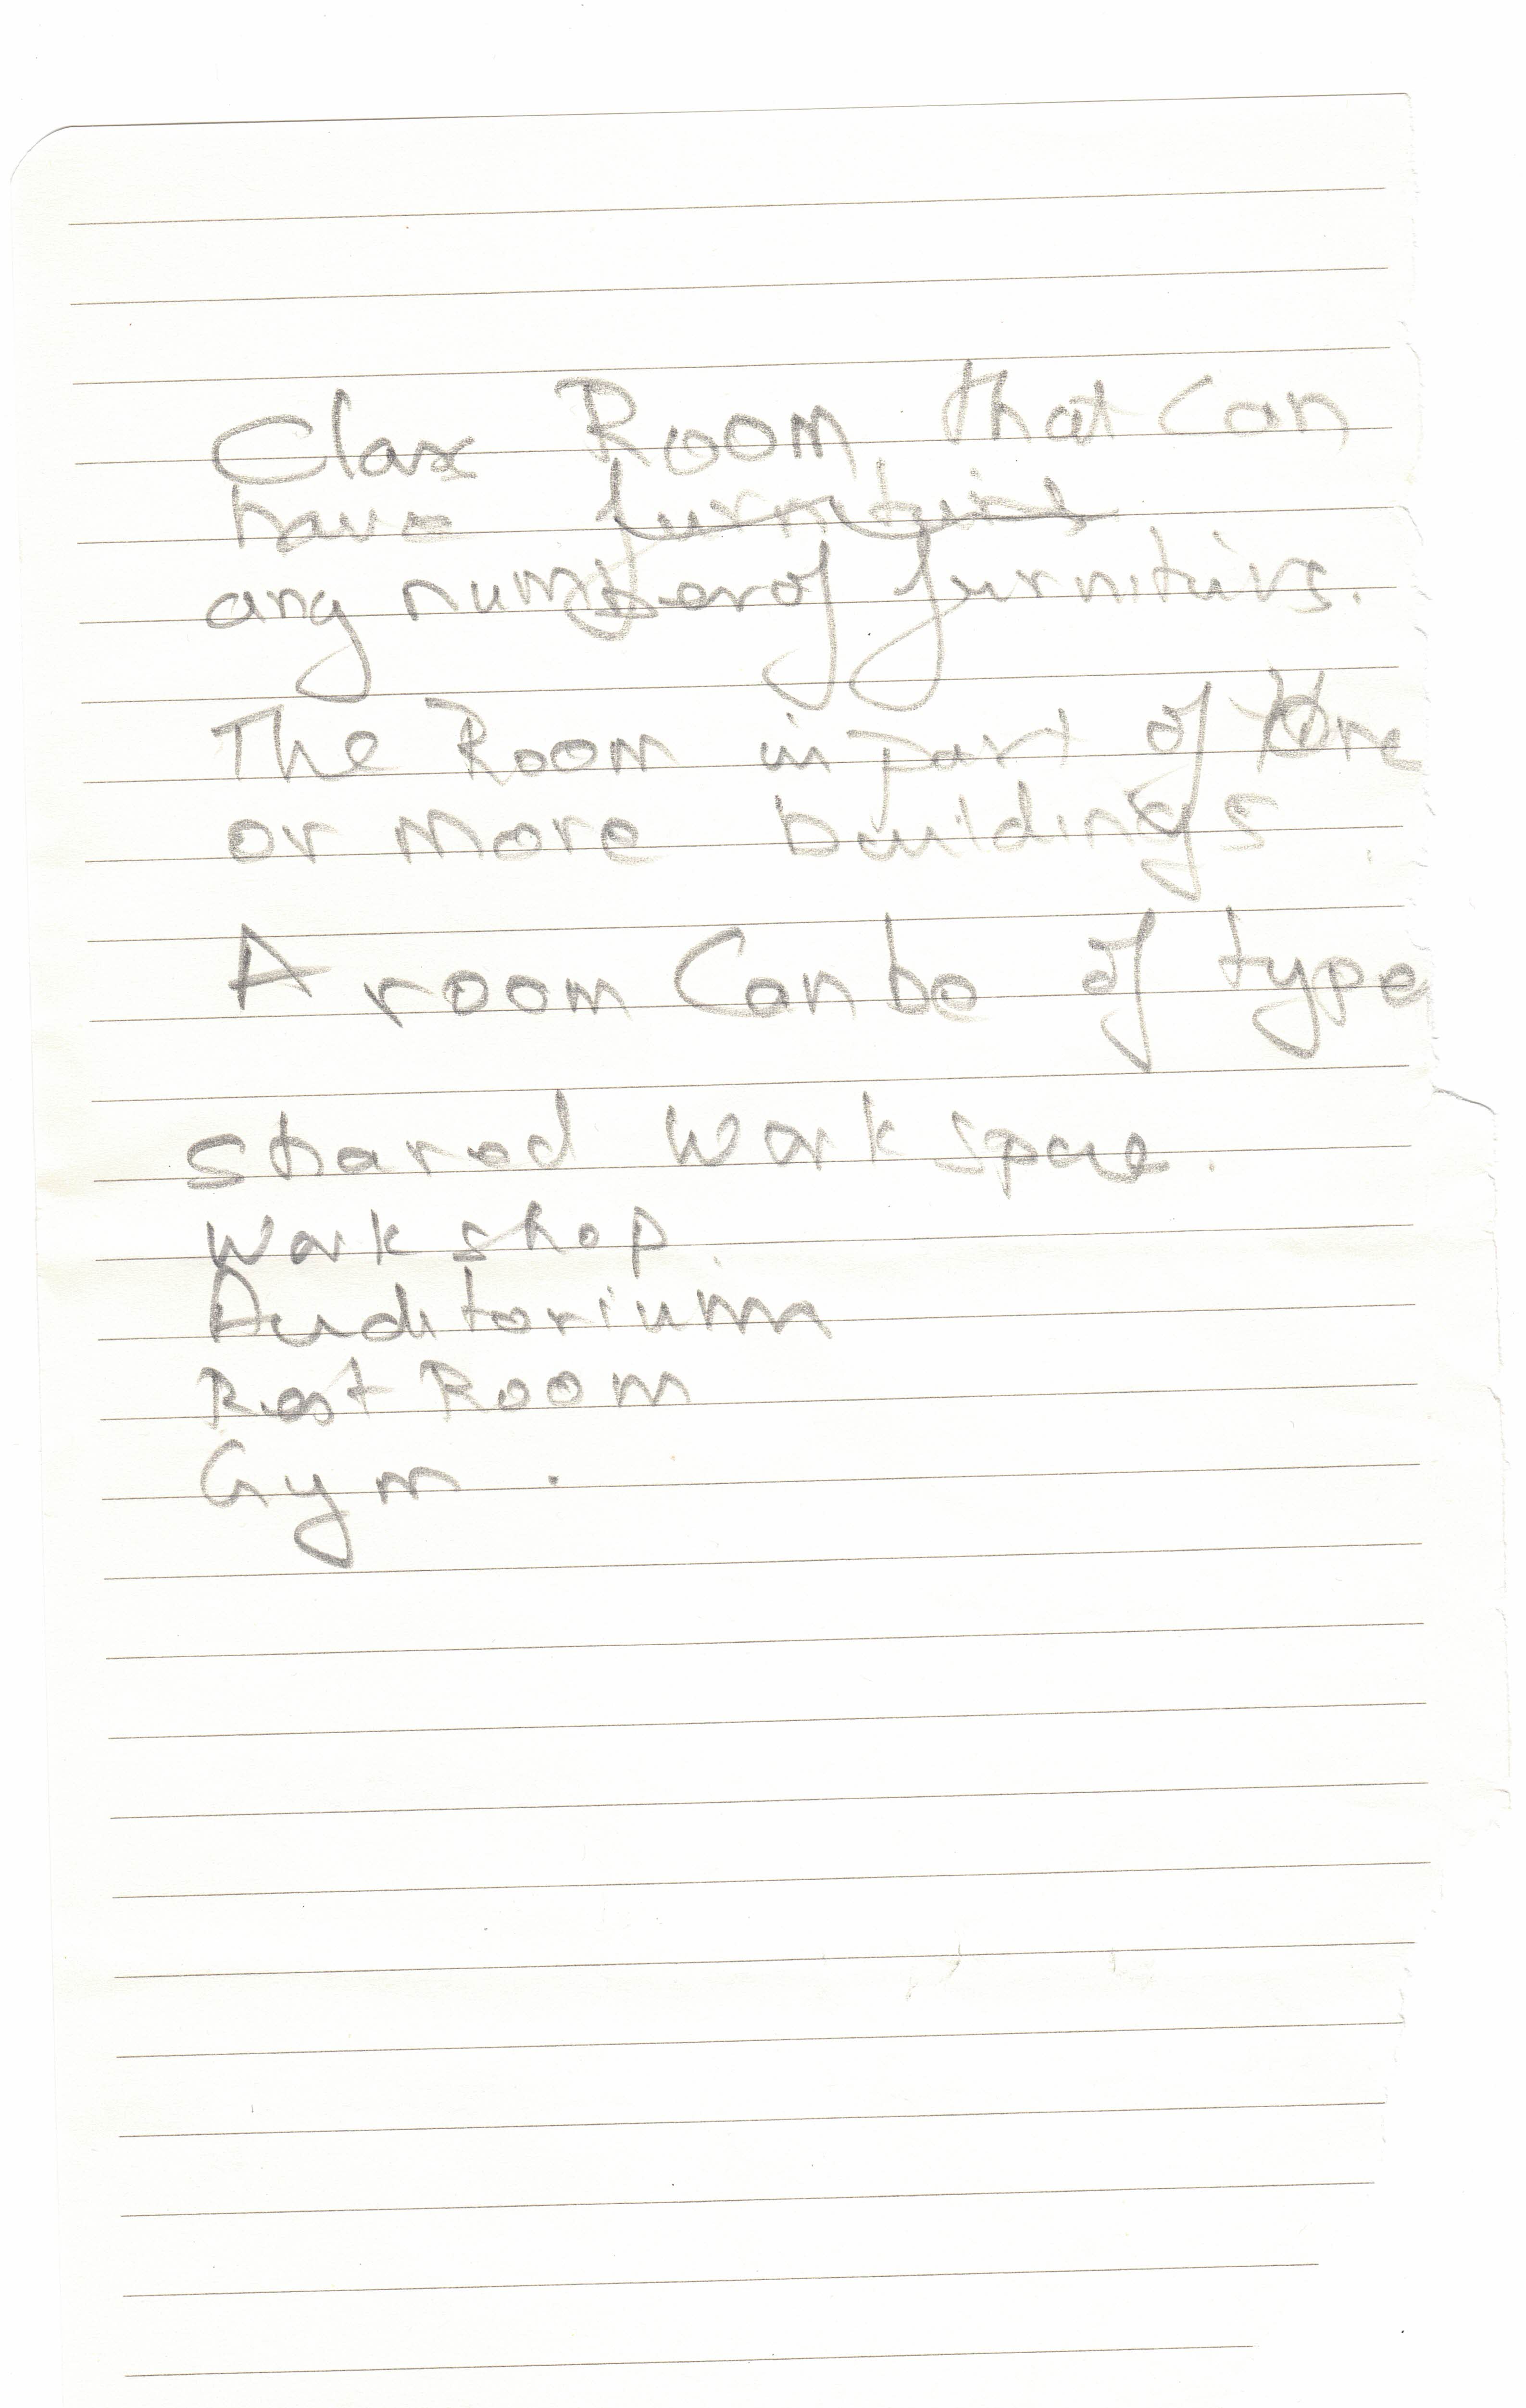 Class Room that can
have furnituirs
any number of furnituirs.
The Room is part of one
or more buildings
A room can be of type
shared work space.
work shop
Auditorium
Rest Room
Gym.